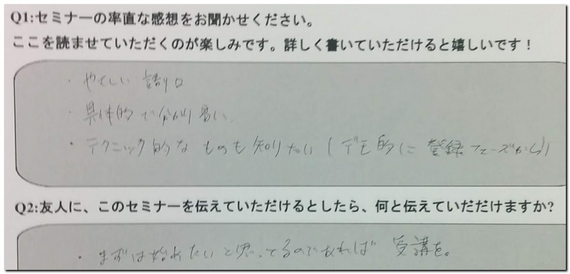 Q1:セミナーの率直な感想をお聞かせください。
ここを読ませていただくのが楽しみです。詳しく書いていただけると嬉しいです！
・やさしい語り口
・具体的で分かり易い
・テクニック的なものも知りたい(デモ的に登録フェーズから)
Q2:友人に、このセミナーを伝えていただけるとしたら、何と伝えていだだけますか?
・まずは始めたいと思ってるのであれば 受講を。